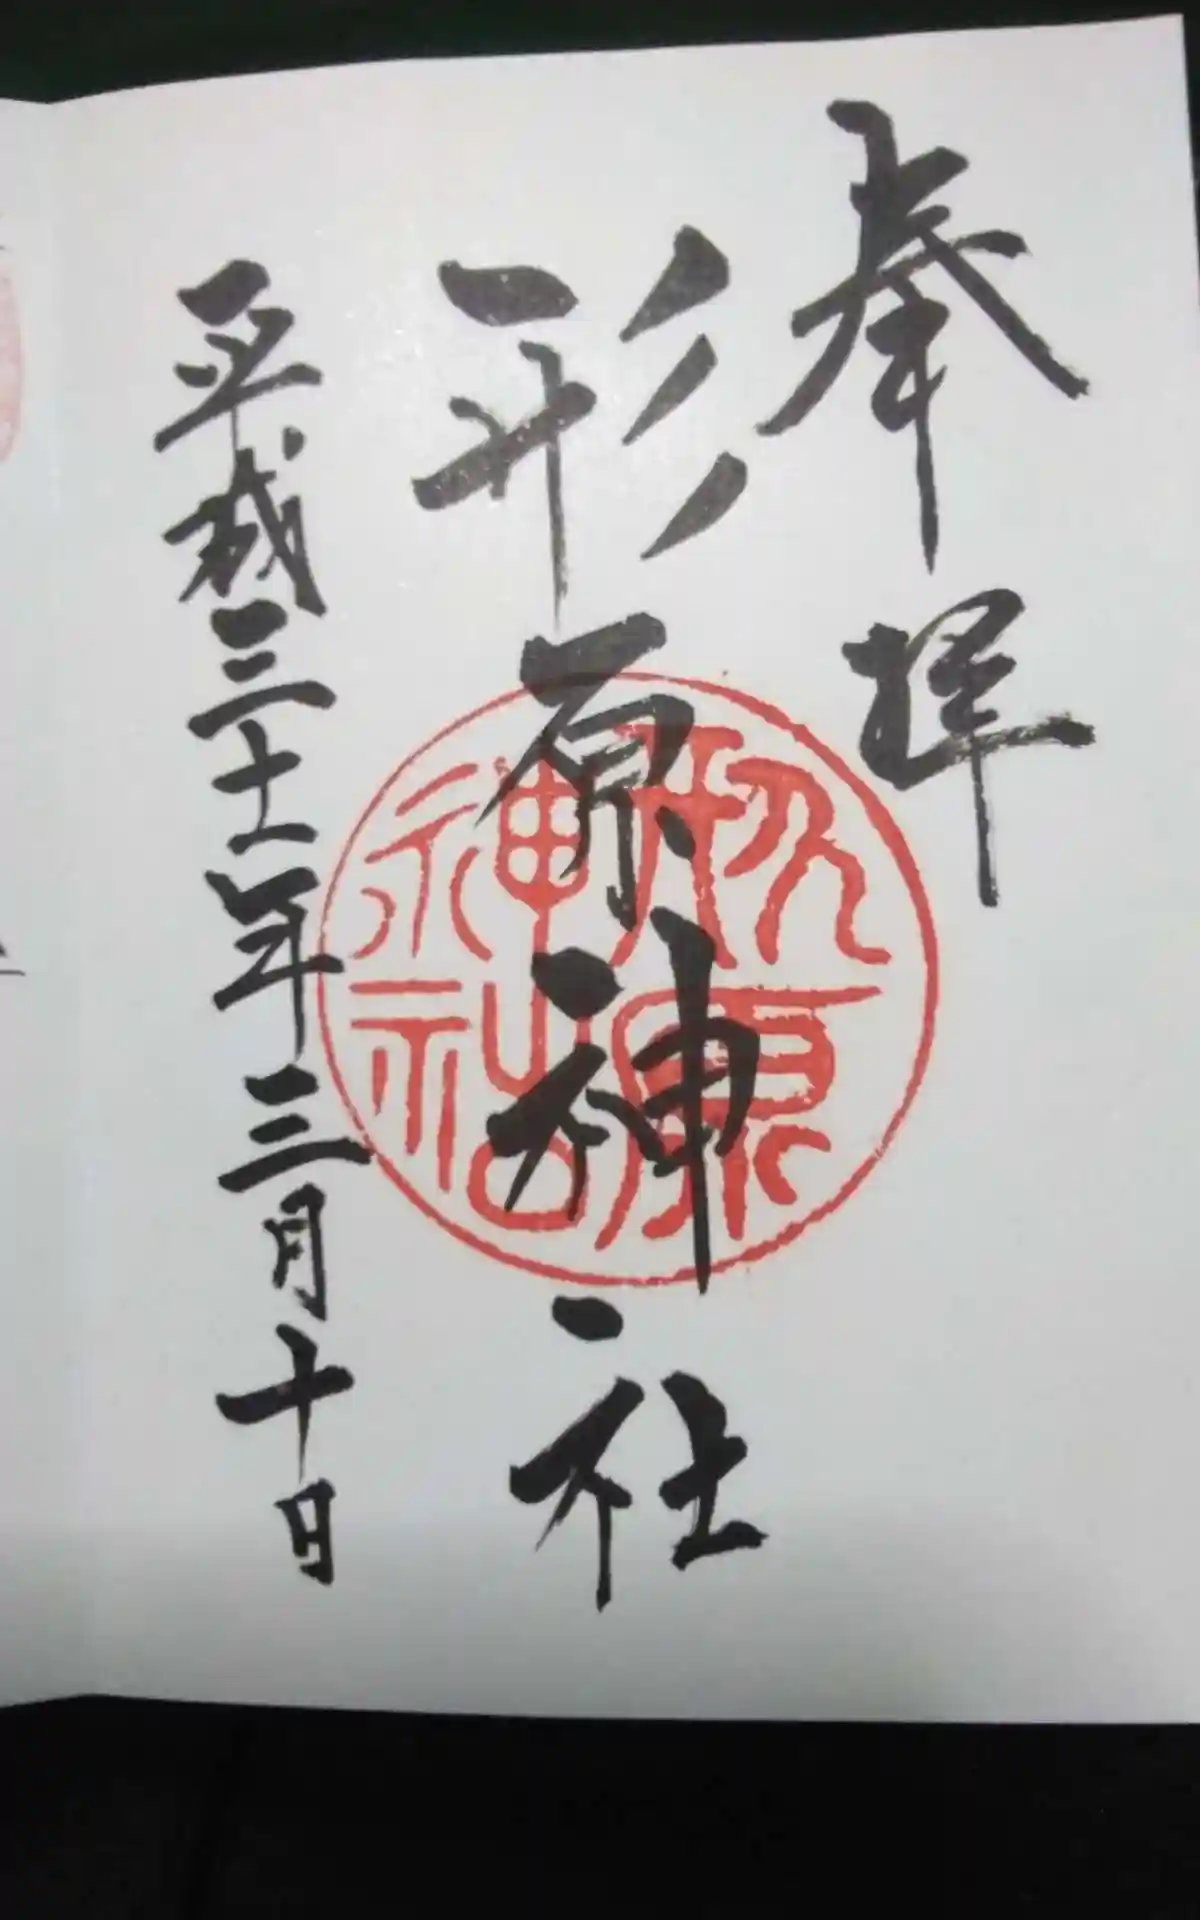 奉拝
形原神社
形原神社
平成三十一年三月十日